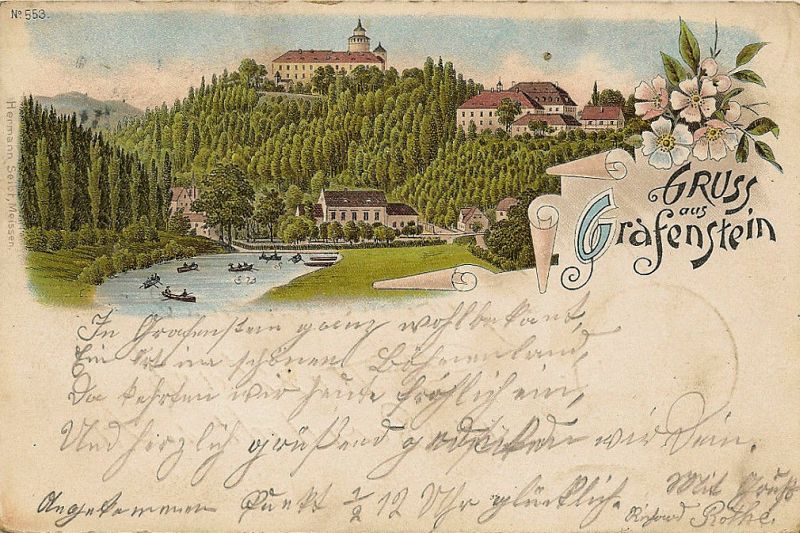 No 553.
Hermann Seibt, Meissen.
GRUSS
aus
Grafenstein
In Grafenstein ganz wohlbekant,
Ein Ort im schönen Böhmenland,
Da kehrten wir heute fröhlich ein,
Und herzlich grüßend gedenken wir Dein.
Angekommen Punkt 1/2 12 Uhr glücklich.
Mit Gruß
Richard Rothe.